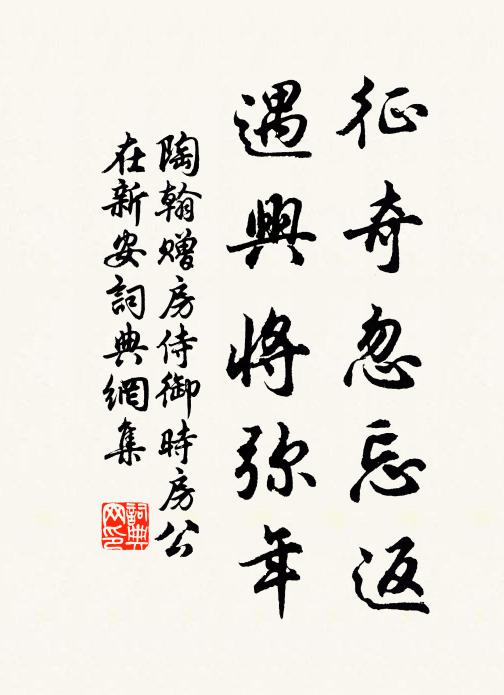 征奇忽忘返
遇興將弥年
陶翰赠房侍御時房公
在新安詞典網集
詞典
网印